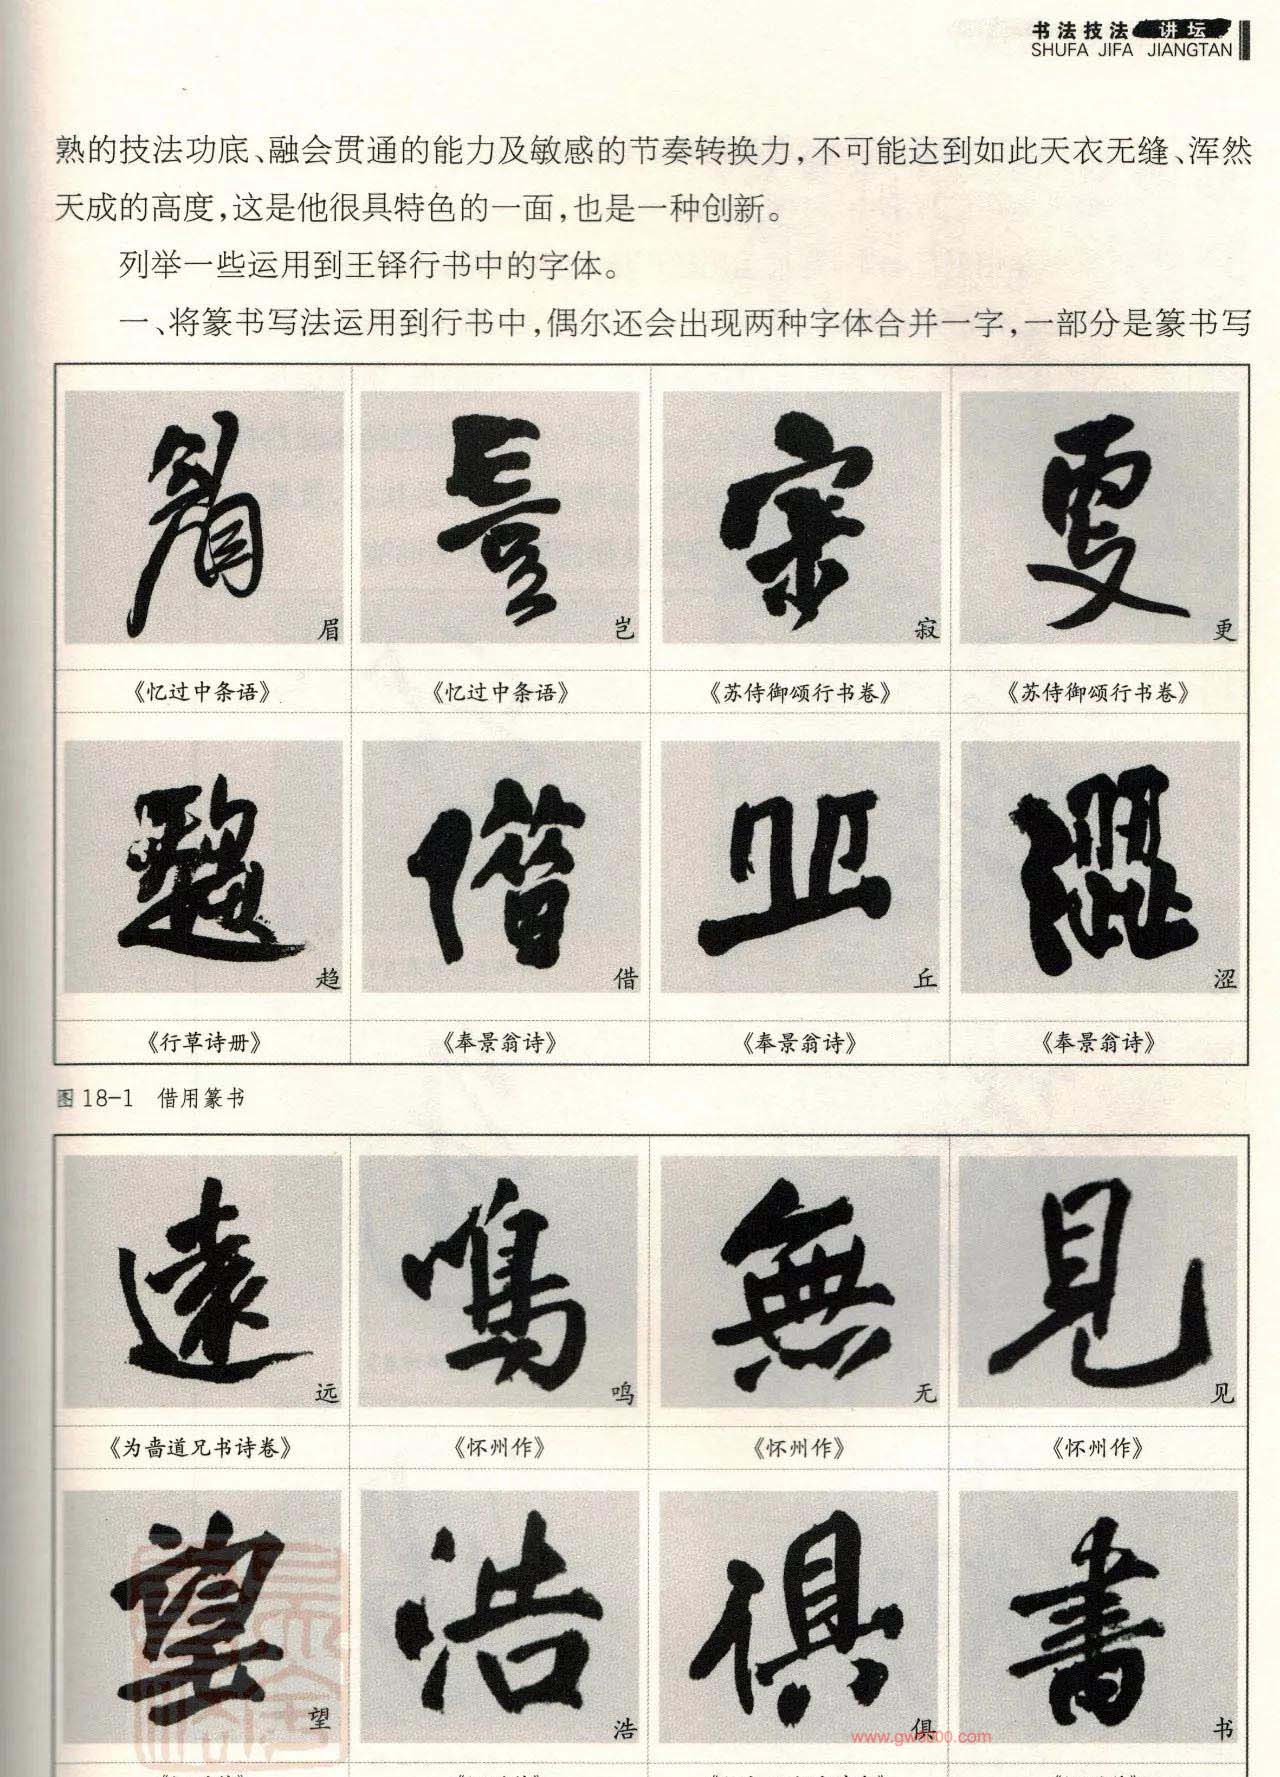 书法技法 讲坛
SHUFA JIFA JIANGTAN
熟的技法功底、融会贯通的能力及敏感的节奏转换力，不可能达到如此天衣无缝、浑然
天成的高度，这是他很具特色的一面，也是一种创新。
列举一些运用到王铎行书中的字体。
一、将篆书写法运用到行书中，偶尔还会出现两种字体合并一字，一部分是篆书写
眉 岂 寂 更
《忆过中条语》 《忆过中条语》 《苏侍御颂行书卷》 《苏侍御颂行书卷》
趋 借 丘 涩
《行草诗册》 《奉景翁诗》 《奉景翁诗》 《奉景翁诗》
图 18-1 借用篆书
遠 鳴 無 見
远 鸣 无 见
《为啬道兄书诗卷》 《怀州作》 《怀州作》 《怀州作》
望 浩 俱 書
望 浩 俱 书
www.gw8800.com